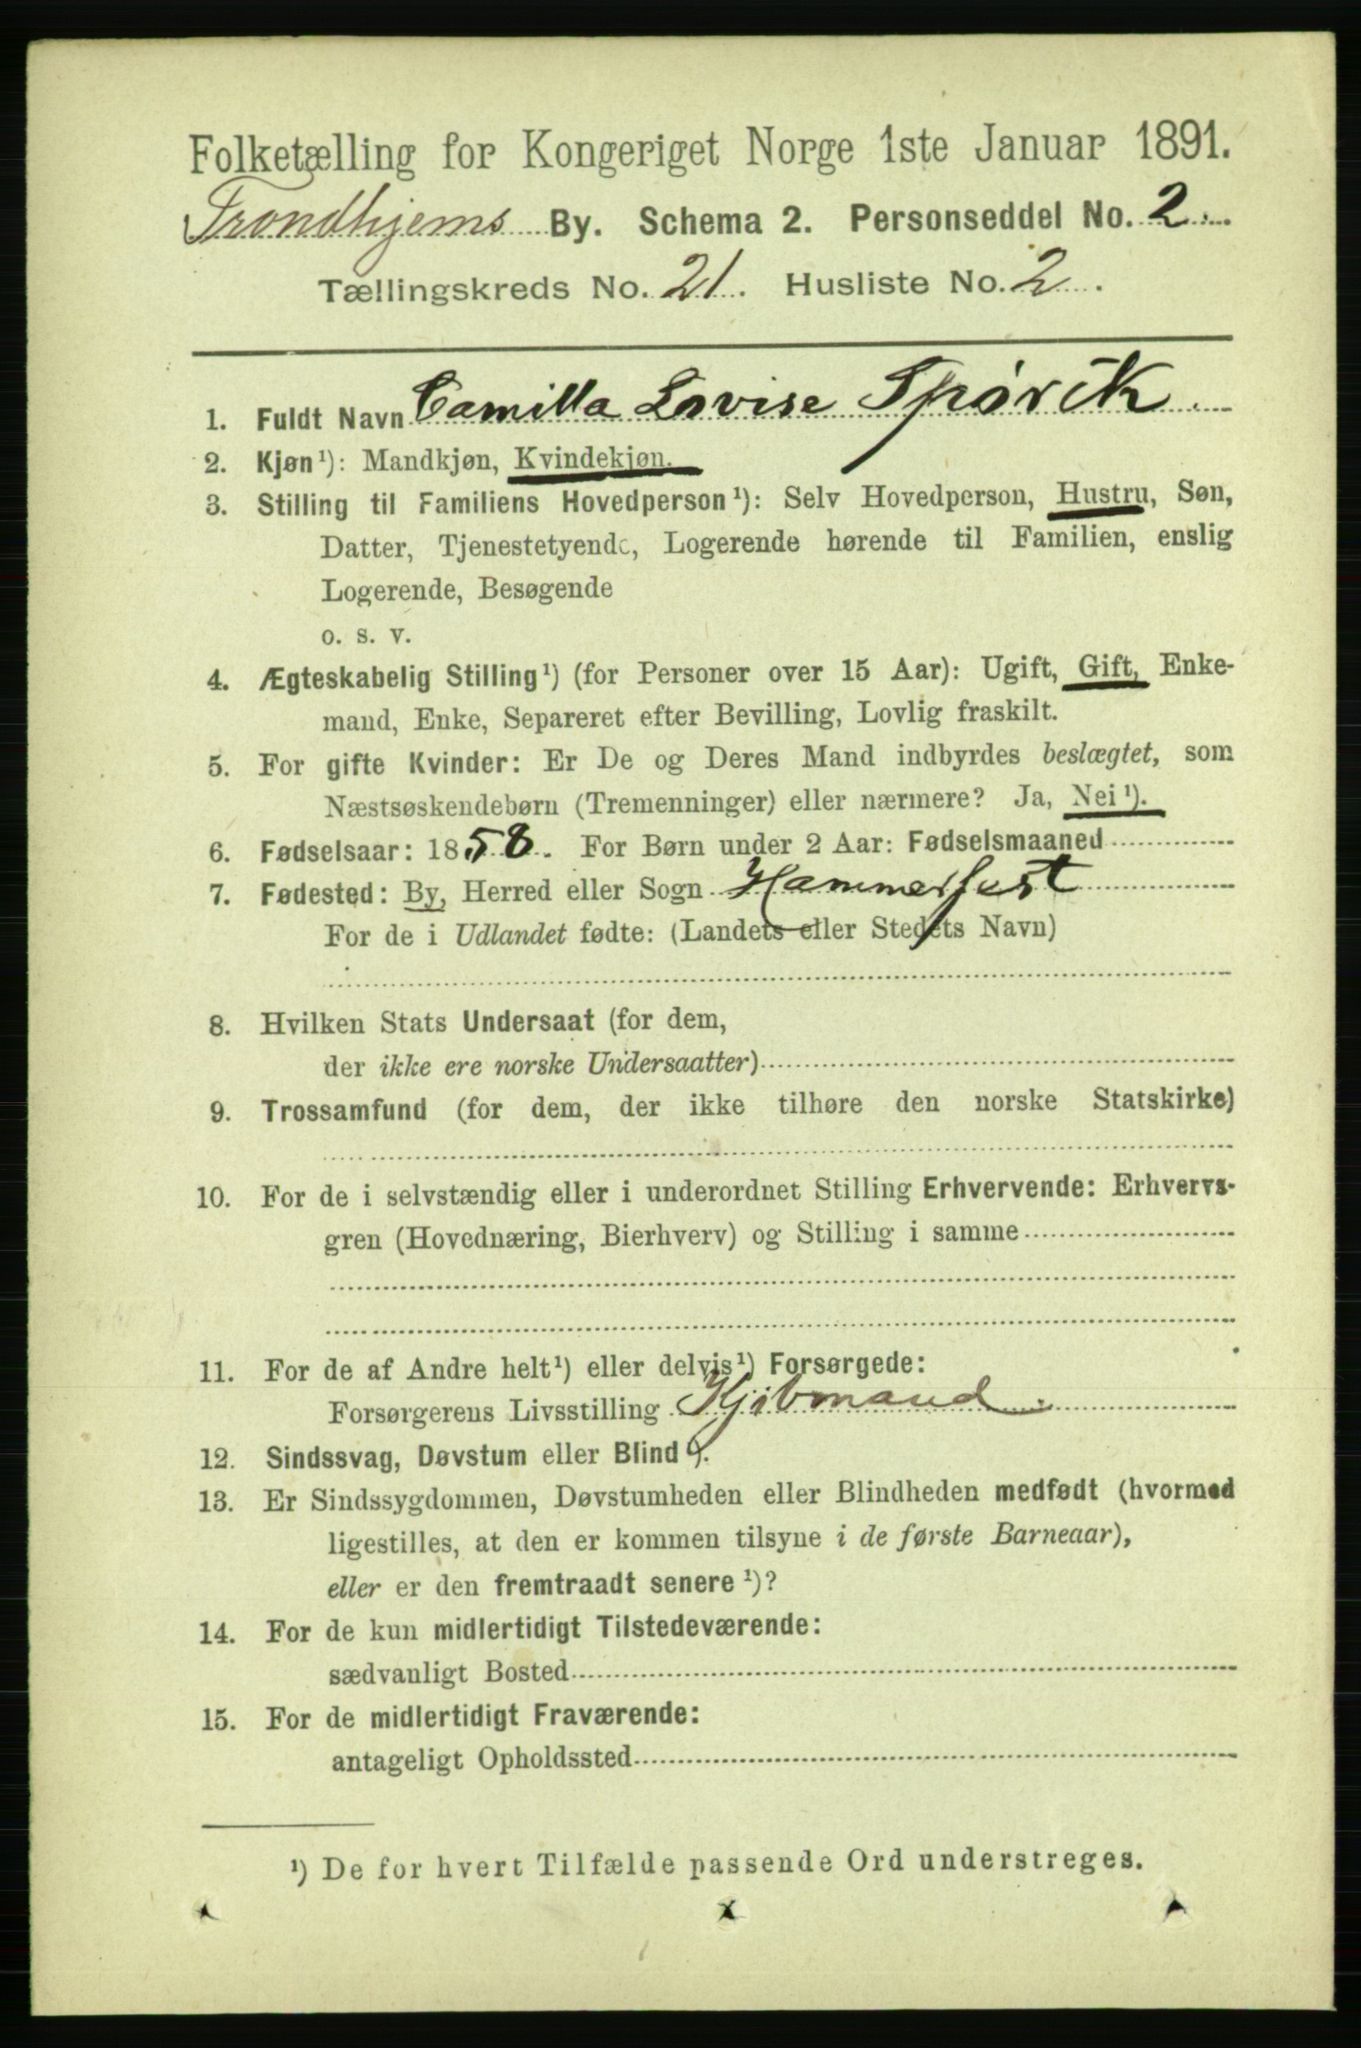 Folketælling for Kongeriget Norge 1ste Januar 1891.
Trondhjems By. Schema 2. Personseddel No. 2.
Tællingskreds No. 21. Husliste No. 2.
1. Fuldt Navn Camilla Lovise Spørck.
2. Kjøn¹): Mandkjøn, Kvindekjøn.
3. Stilling til Familiens Hovedperson¹): Selv Hovedperson, Hustru, Søn,
Datter, Tjenestetyende, Logerende hørende til Familien, enslig
Logerende, Besøgende
o. s. v.
4. Ægteskabelig Stilling¹) (for Personer over 15 Aar): Ugift, Gift, Enke-
mand, Enke, Separeret efter Bevilling, Lovlig fraskilt.
5. For gifte Kvinder: Er De og Deres Mand indbyrdes beslægtet, som
Næstsøskendebørn (Tremenninger) eller nærmere? Ja, Nei¹).
6. Fødselsaar: 1858. For Børn under 2 Aar: Fødselsmaaned
7. Fødested: By, Herred eller Sogn Hammerfest
For de i Udlandet fødte: (Landets eller Stedets Navn)
8. Hvilken Stats Undersaat (for dem,
der ikke ere norske Undersaatter)
9. Trossamfund (for dem, der ikke tilhøre den norske Statskirke)
10. For de i selvstændig eller i underordnet Stilling Erhvervende: Erhvervs-
gren (Hovednæring, Bierhverv) og Stilling i samme
11. For de af Andre helt¹) eller delvis¹) Forsørgede:
Forsørgerens Livsstilling Kjøbmand.
12. Sindssvag, Døvstum eller Blind¹).
13. Er Sindssygdommen, Døvstumheden eller Blindheden medfødt (hvormed
ligestilles, at den er kommen tilsyne i de første Barneaar),
eller er den fremtraadt senere¹)?
14. For de kun midlertidigt Tilstedeværende:
sædvanligt Bosted
15. For de midlertidigt Fraværende:
antageligt Opholdssted
¹) De for hvert Tilfælde passende Ord understreges.